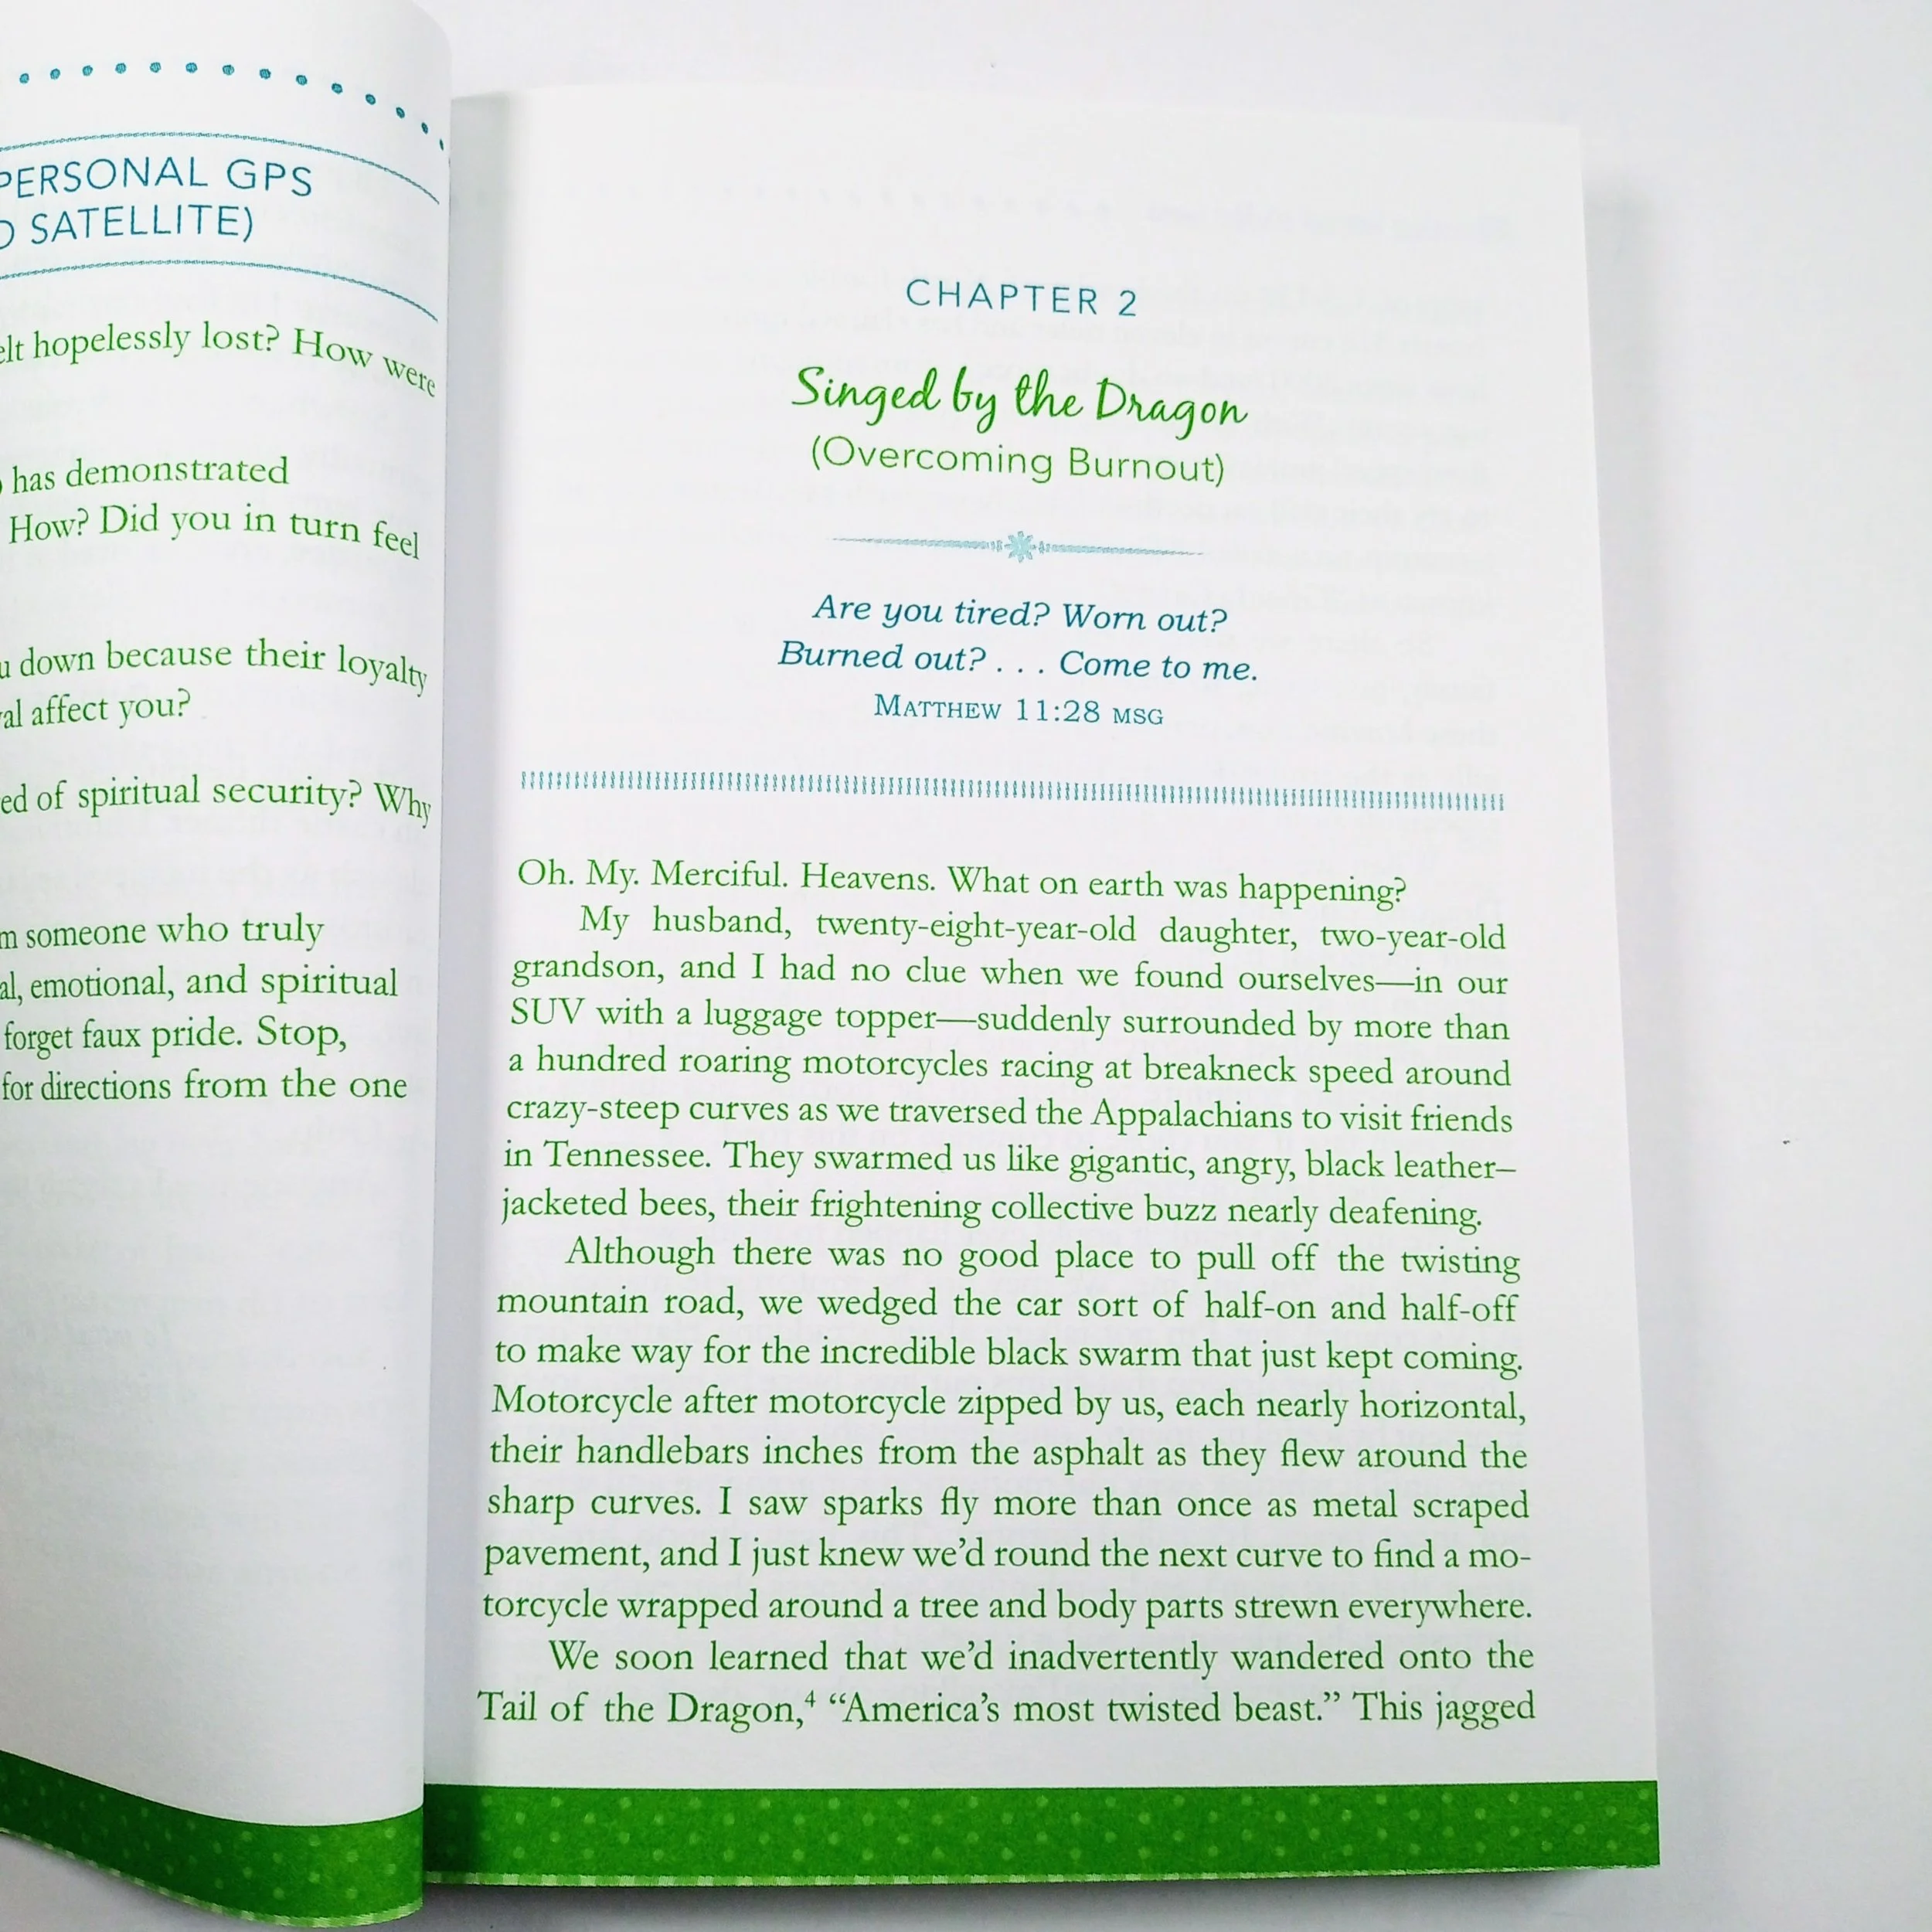 PERSONAL GPS
SATELLITE)
hopelessly lost? How were
has demonstrated
How? Did you in turn feel
down because their loyalty
affect you?
of spiritual security? Why
someone who truly
emotional, and spiritual
forget faux pride. Stop,
for directions from the one
CHAPTER 2
Singed by the Dragon
(Overcoming Burnout)
Are you tired? Worn out?
Burned out? . . . Come to me.
MATTHEW 11:28 MSG
Oh. My. Merciful. Heavens. What on earth was happening?
My husband, twenty-eight-year-old daughter, two-year-old
grandson, and I had no clue when we found ourselves—in our
SUV with a luggage topper—suddenly surrounded by more than
a hundred roaring motorcycles racing at breakneck speed around
crazy-steep curves as we traversed the Appalachians to visit friends
in Tennessee. They swarmed us like gigantic, angry, black leather–
jacketed bees, their frightening collective buzz nearly deafening.
Although there was no good place to pull off the twisting
mountain road, we wedged the car sort of half-on and half-off
to make way for the incredible black swarm that just kept coming.
Motorcycle after motorcycle zipped by us, each nearly horizontal,
their handlebars inches from the asphalt as they flew around the
sharp curves. I saw sparks fly more than once as metal scraped
pavement, and I just knew we’d round the next curve to find a mo-
torcycle wrapped around a tree and body parts strewn everywhere.
We soon learned that we’d inadvertently wandered onto the
Tail of the Dragon,⁴ “America’s most twisted beast.” This jagged